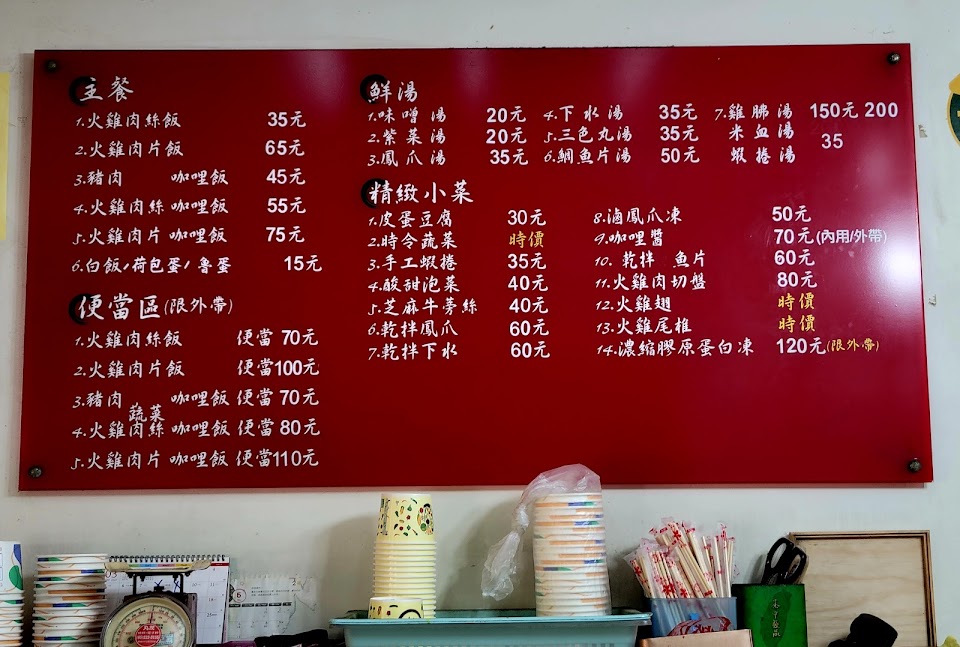 主餐
1.火雞肉絲飯 35元
2.火雞肉片飯 65元
3.豬肉 咖哩飯 45元
4.火雞肉絲 咖哩飯 55元
5.火雞肉片 咖哩飯 75元
6.白飯/荷包蛋/魯蛋 15元
便當區(限外帶)
1.火雞肉絲飯 便當 70元
2.火雞肉片飯 便當100元
3.豬肉 咖哩飯 便當 70元
蔬菜
4.火雞肉絲 咖哩飯 便當 80元
5.火雞肉片 咖哩飯 便當110元
鮮湯
1.味噌湯 20元
2.紫菜湯 20元
3.鳳爪湯 35元
4.下水湯 35元
5.三色丸湯 35元
6.鯛魚片湯 50元
7.雞腓湯 150元 200
米血湯 35
蝦捲湯
精緻小菜
1.皮蛋豆腐 30元
2.時令蔬菜 時價
3.手工蝦捲 35元
4.酸甜泡菜 40元
5.芝麻牛蒡絲 40元
6.乾拌鳳爪 60元
7.乾拌下水 60元
8.滷鳳爪凍 50元
9.咖哩醬 70元(內用/外帶)
10.乾拌 魚片 60元
11.火雞肉切盤 80元
12.火雞翅 時價
13.火雞尾椎 時價
14.濃縮膠原蛋白凍 120元(限外帶)